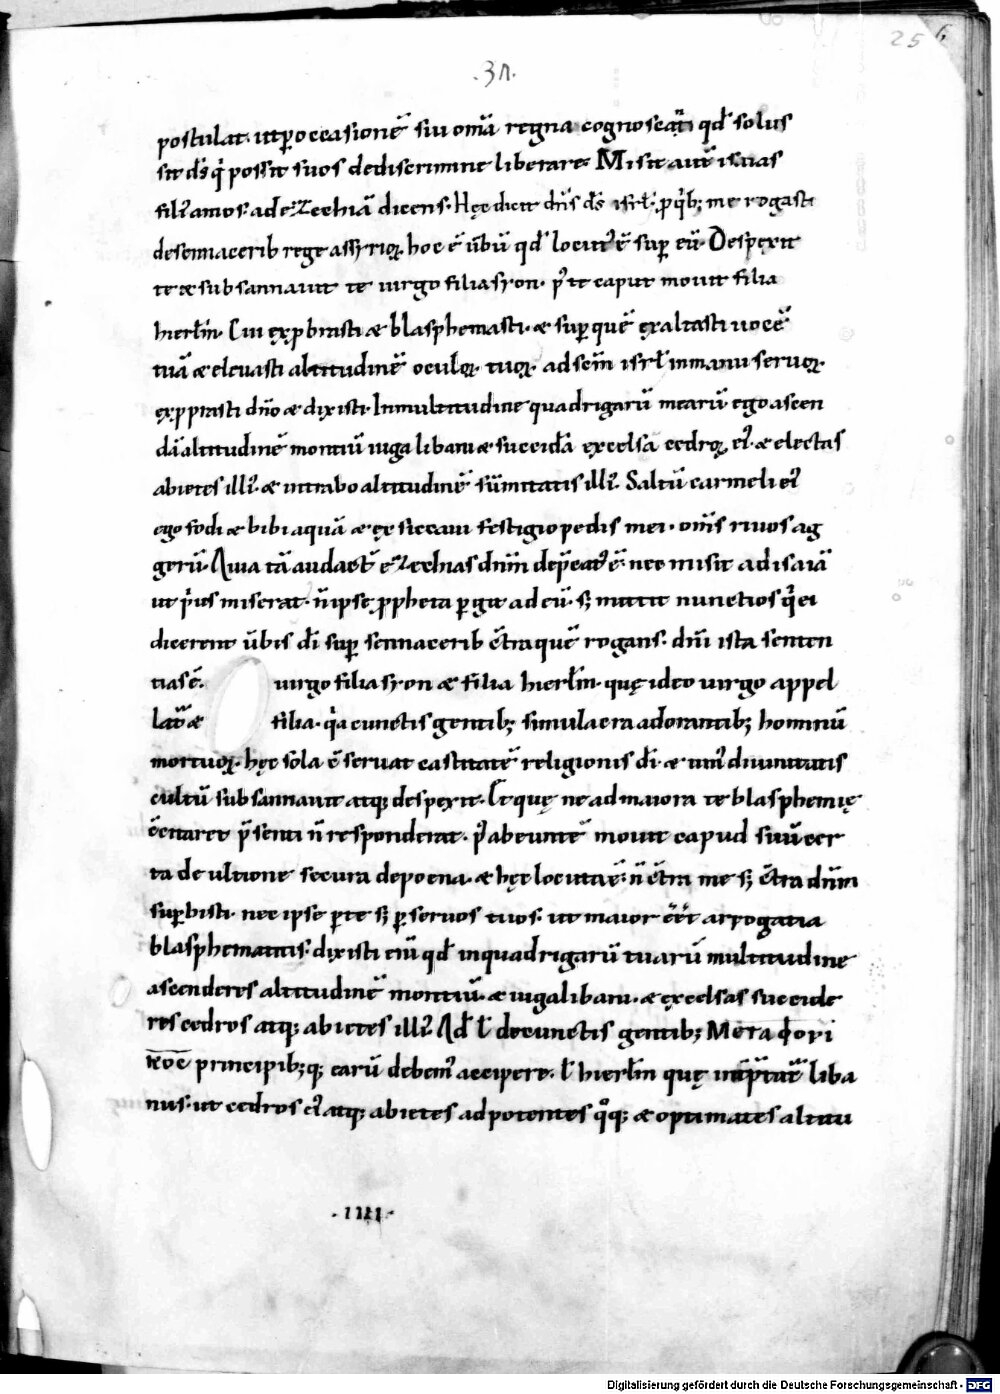 25
.31.
postulat. ut p̱ occasionē sui om̄a regna cognoscant qđ solus
sit d̄s q̇ possit suos dediscrimine liberare. Misit aut̄ isaias
filiꝰ amos. adezechiā dicens. Hęc dicit dn̄s d̄s isrł. ꝓ qͥbꝫ me rogasti
desennacherib rege assyrioꝝ. hoc ē ūbū qđ locutꝰ ē sup̱ eū. Despexit
te & subsannauit te uirgo filia syon. p̱ te caput mouit filia
hierłm. Cui exprobrasti & blasphemasti. & sup̱ quē exaltasti uocē
tuā & eleuasti altitudinē oculoꝝ tuoꝝ. ad scm̄ isrł. Inmanu seruoꝝ
exprobrasti dn̄o & dixisti. Inmultitudine quadrigarū mearū ego ascen
di altitudinē montiū iuga libani & succidā excelsa cedroꝝ eiꝰ. & electas
abietes illiꝰ. & intrabo altitudinē sūmitatis illiꝰ. Saltū carmeli eiꝰ
ego fodi & bibi aquā & exsiccaui festigio pedis mei. om̄s riuos ag
gerū. Quia tā audact̄ ezechias dn̄m dep̄catꝰ ē. nec misit ad isaiā
ut p̄us miserat. n̄ ipse ꝓpheta p̱git ad eū. sꝫ mittit nunctios qͥ ei
dicerent ūbis d̄i sup̱ sennacerib c̄tra quē rogans. dn̄i ista senten
tia ē. uirgo filia syon & filia hierłm. quę ideo uirgo appel
lat̄ & filia. qͥa cunctis gentibꝫ simulacra adorantibꝫ hominū
mortuoꝝ. hęc sola c̄seruat castitatē religionis d̄i. & uniꝰ diuinitatis
cultū subsannauit atqꝫ despexit. Et quę ne ad maiora te blasphemię
c̄citaret p̄senti n̄ responderat. p̱ abeuntē mouit capud suū cer
ta de ultione secura de poena. & hęc locuta ē. n̄ c̄tra me sꝫ c̄tra dn̄m
sup̱bisti. nec ipse p̱ te sꝫ p̱ seruos tuos. ut maior eēt arrogatia
blasphemantis. dixisti eni qđ inquadrigarū tuarū multitudine
ascenderes altitudinē montiū. & iuga libani. & excelsas succide
res cedros atqꝫ abietes illiꝰ. Qđ ł decunctis gentibꝫ Μεταφορι
κωσ principibꝫqꝫ earū debemꝰ accipere. ł hierłm quę int̄p̄tat̄ liba
nus. ut cedros eiꝰ atqꝫ abietes ad potentes qͦqꝫ & optimates altitu
.IIII.
Digitalisierung gefördert durch die Deutsche Forschungsgemeinschaft - DFG